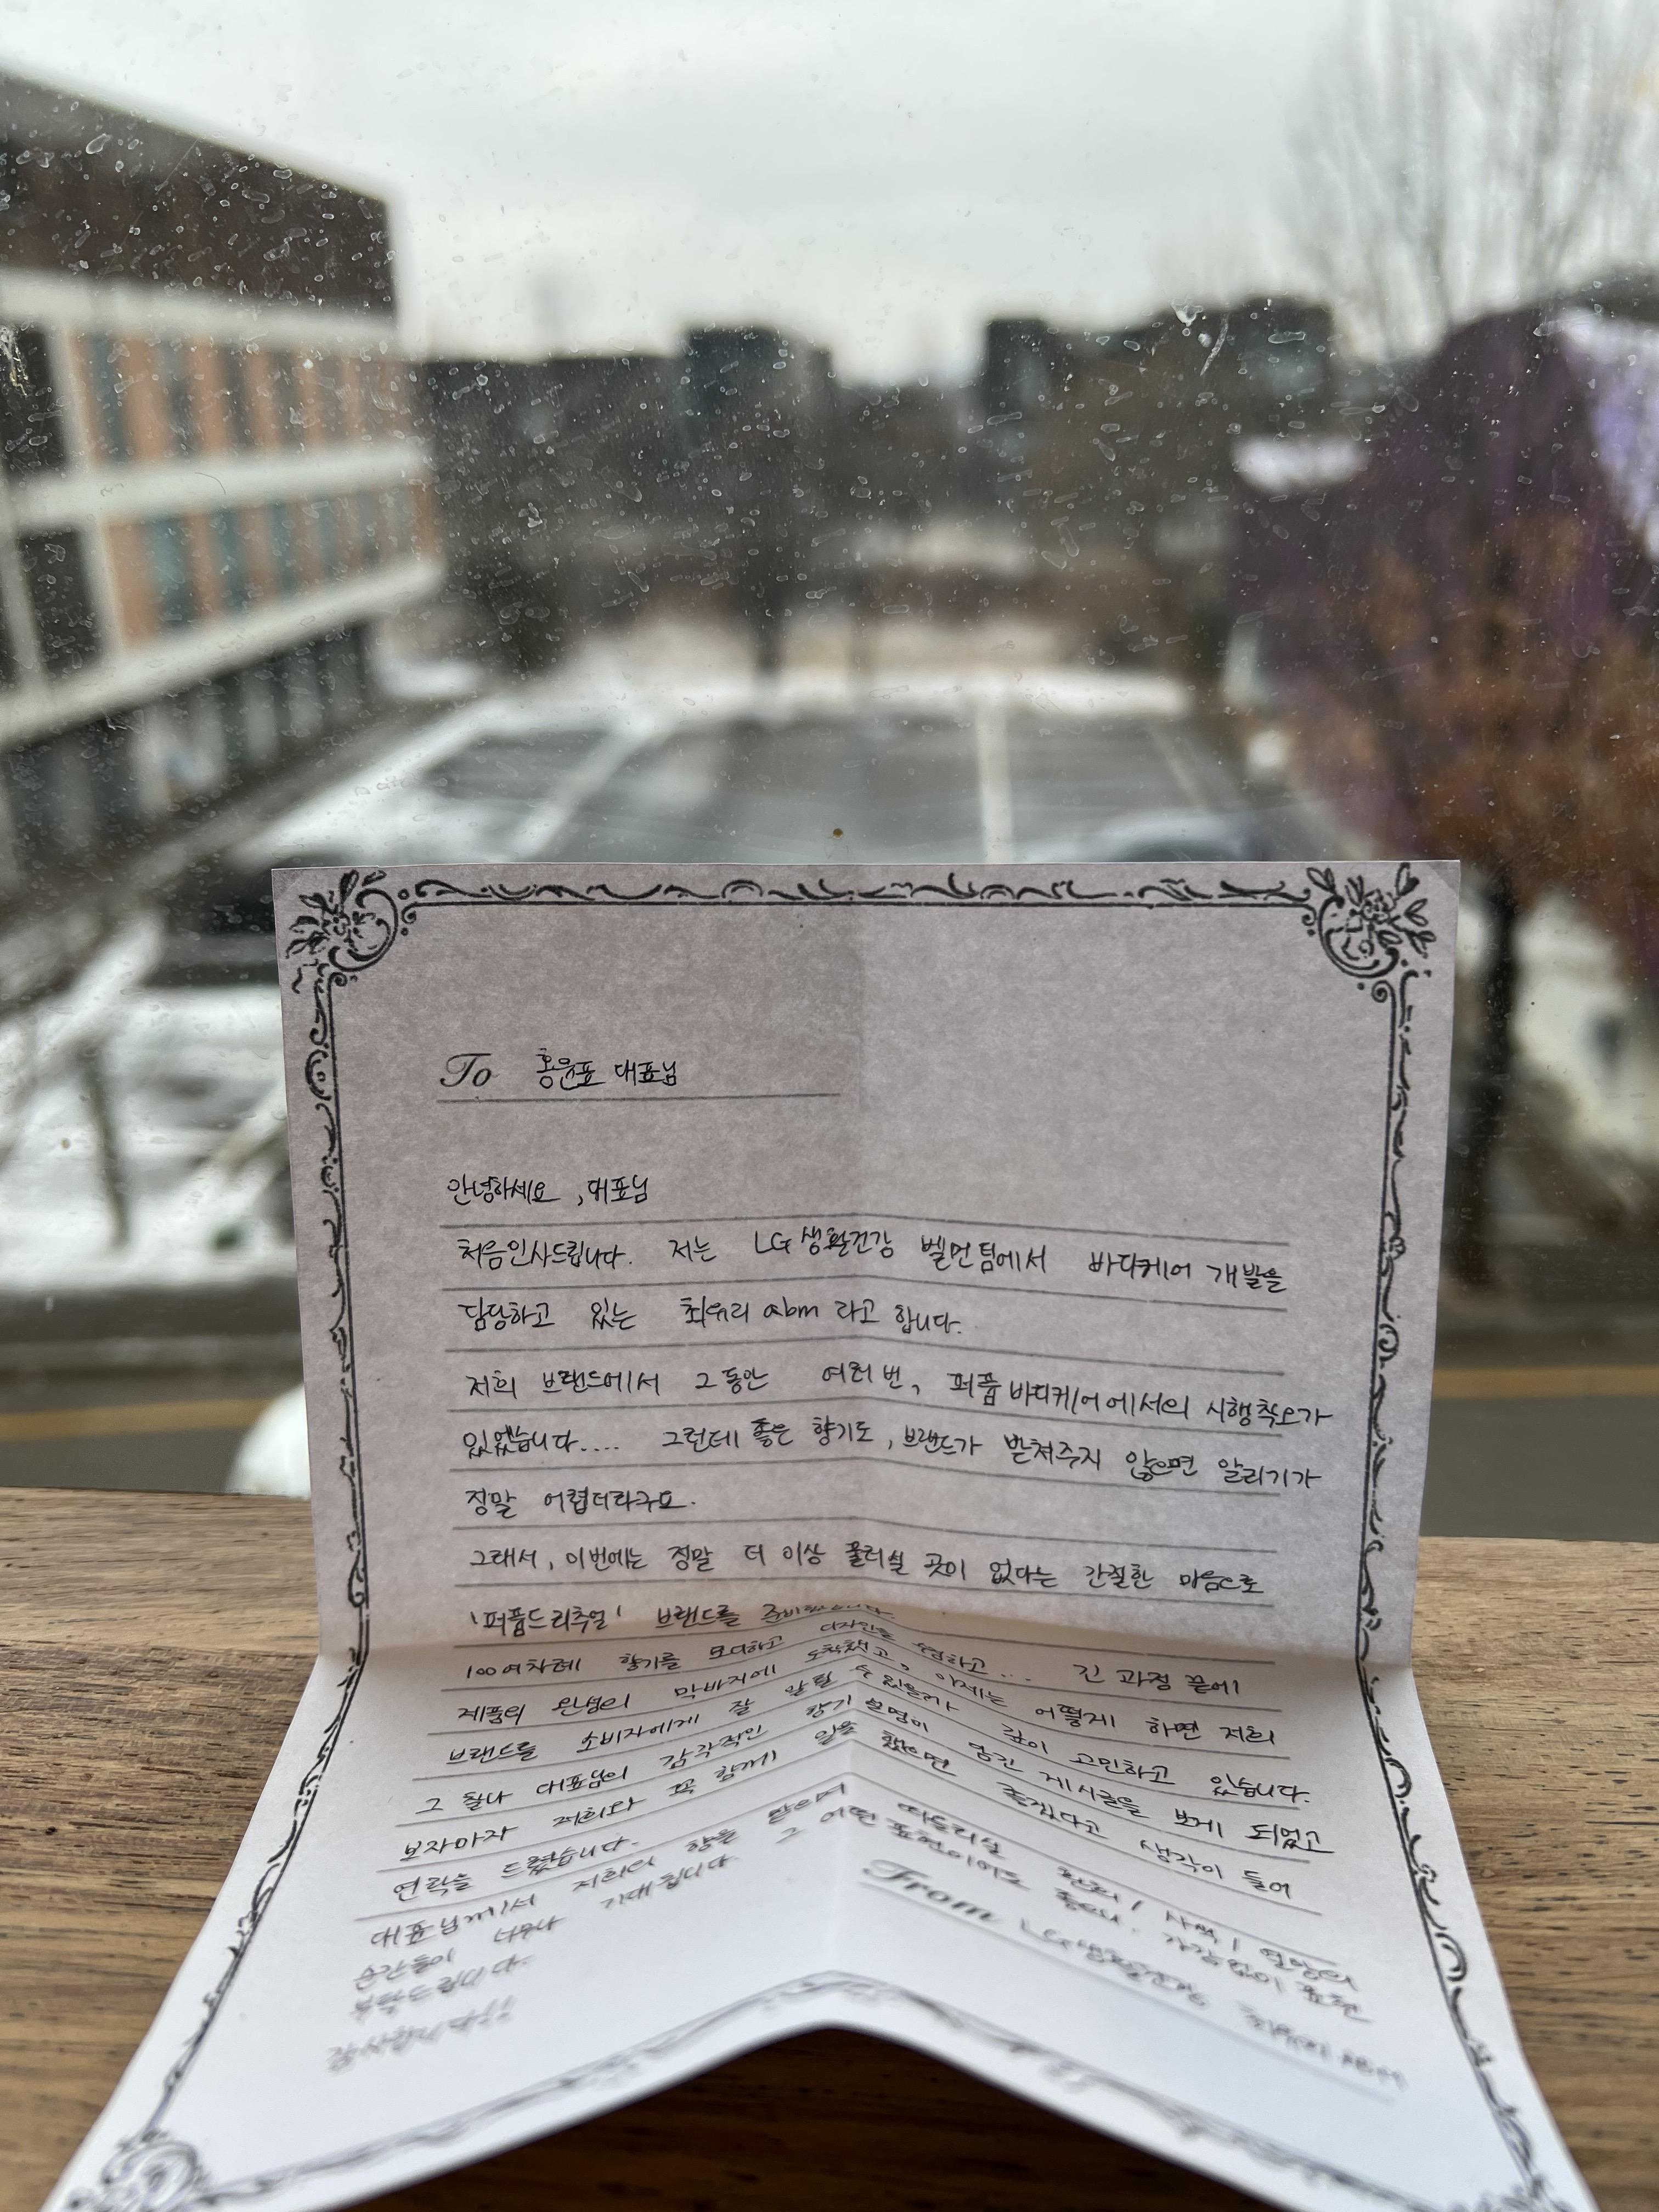 To 홍윤표 대표님
안녕하세요, 대표님
처음인사드립니다. 저는 LG생활건강 벨먼팀에서 바디케어 개발을
담당하고 있는 최유리 abm 라고 합니다.
저희 브랜드에서 그동안 여러번, 퍼퓸바디케어에서의 시행착오가
있었습니다.... 그런데 좋은 향기도, 브랜드가 받쳐주지 않으면 알리기가
정말 어렵더라구요.
그래서, 이번에는 정말 더 이상 물러설 곳이 없다는 간절한 마음으로
'퍼퓸드리추얼' 브랜드를 준비했습니다.
100여차례 향기를 모디하고 디자인을 하고... 긴 과정 끝에
제품의 완성의 막바지에 도착했고, 이제는 어떻게 하면 저희
브랜드를 소비자에게 잘 알릴 수 있을까 깊이 고민하고 있습니다.
그 찰나 대표님의 감각적인 향기 설명이 담긴 게시글을 보게 되었고
보자마자 저희와 꼭 함께 일을 했으면 좋겠다고 생각이 들어
연락을 드렸습니다.
대표님께서 저희의 향을 맡으며 떠올리실
순간들이 너무나 기대됩니다. 그 어떤 표현이어도 좋으니, 가감없이 표현
부탁드립니다.
감사합니다!!
From LG생활건강 최유리 ABM